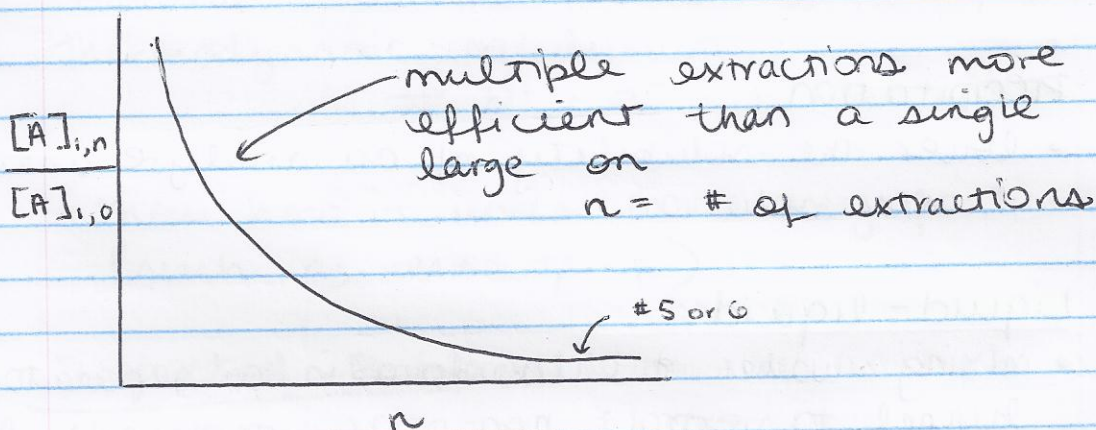 multiple extractions more
efficient than a single
large on
n = # of extractions
[A]i,n
[A]1,0
#5 or 6
n